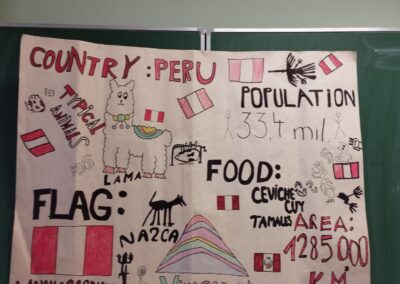 COUNTRY : PERU
TYPICAL
ANIMALS
LAMA
POPULATION
33,4 mil.
FOOD:
CEVICHE
CUY
TAMALES
FLAG:
NAZCA
AREA:
1285000
KM